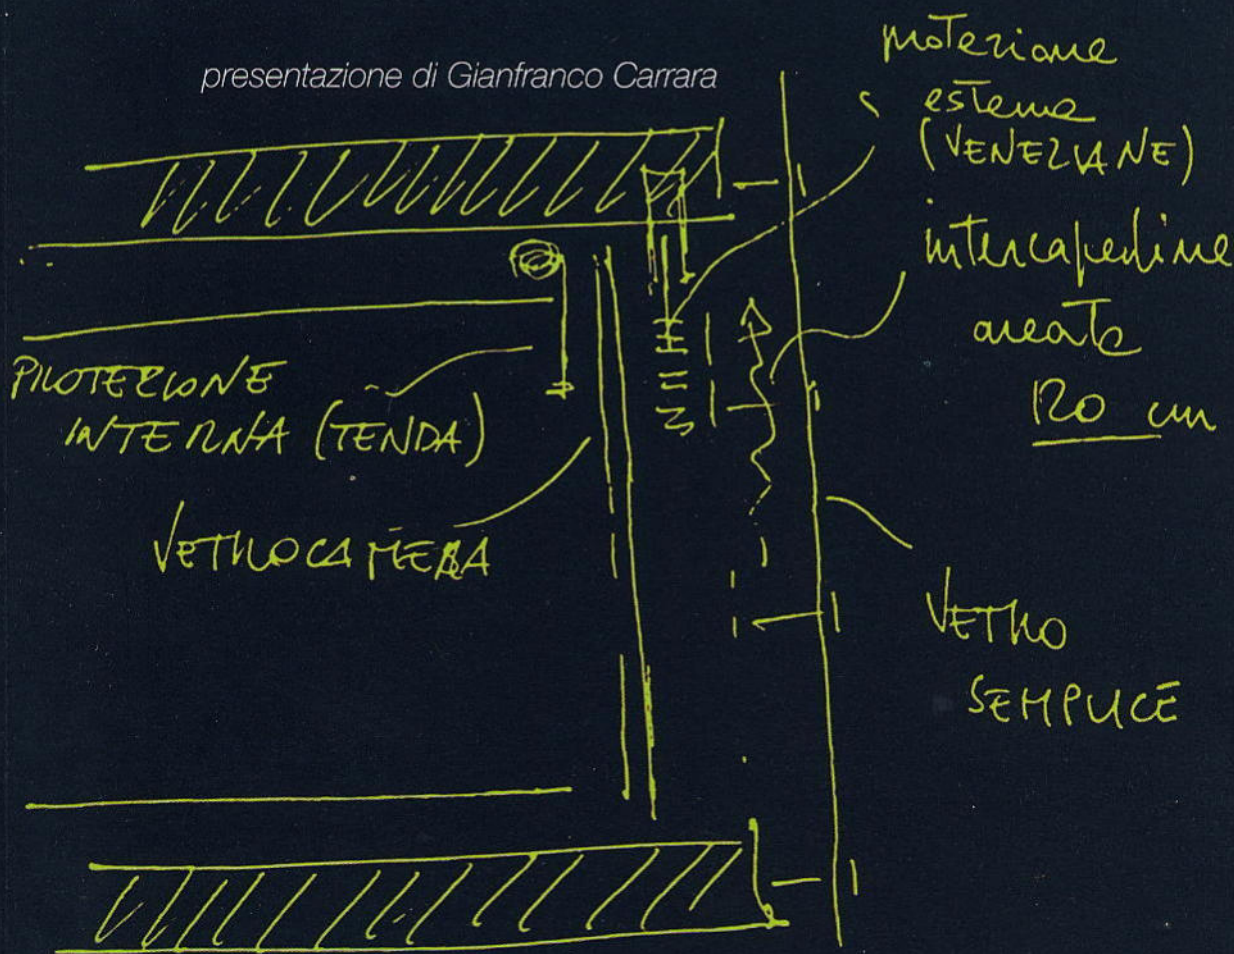 presentazione di Gianfranco Carrara
protezione
esterna
(VENEZIANE)
intercapedine
areata
120 cm
PROTEZIONE
INTERNA (TENDA)
VETROCAMERA
VETRO
SEMPLICE